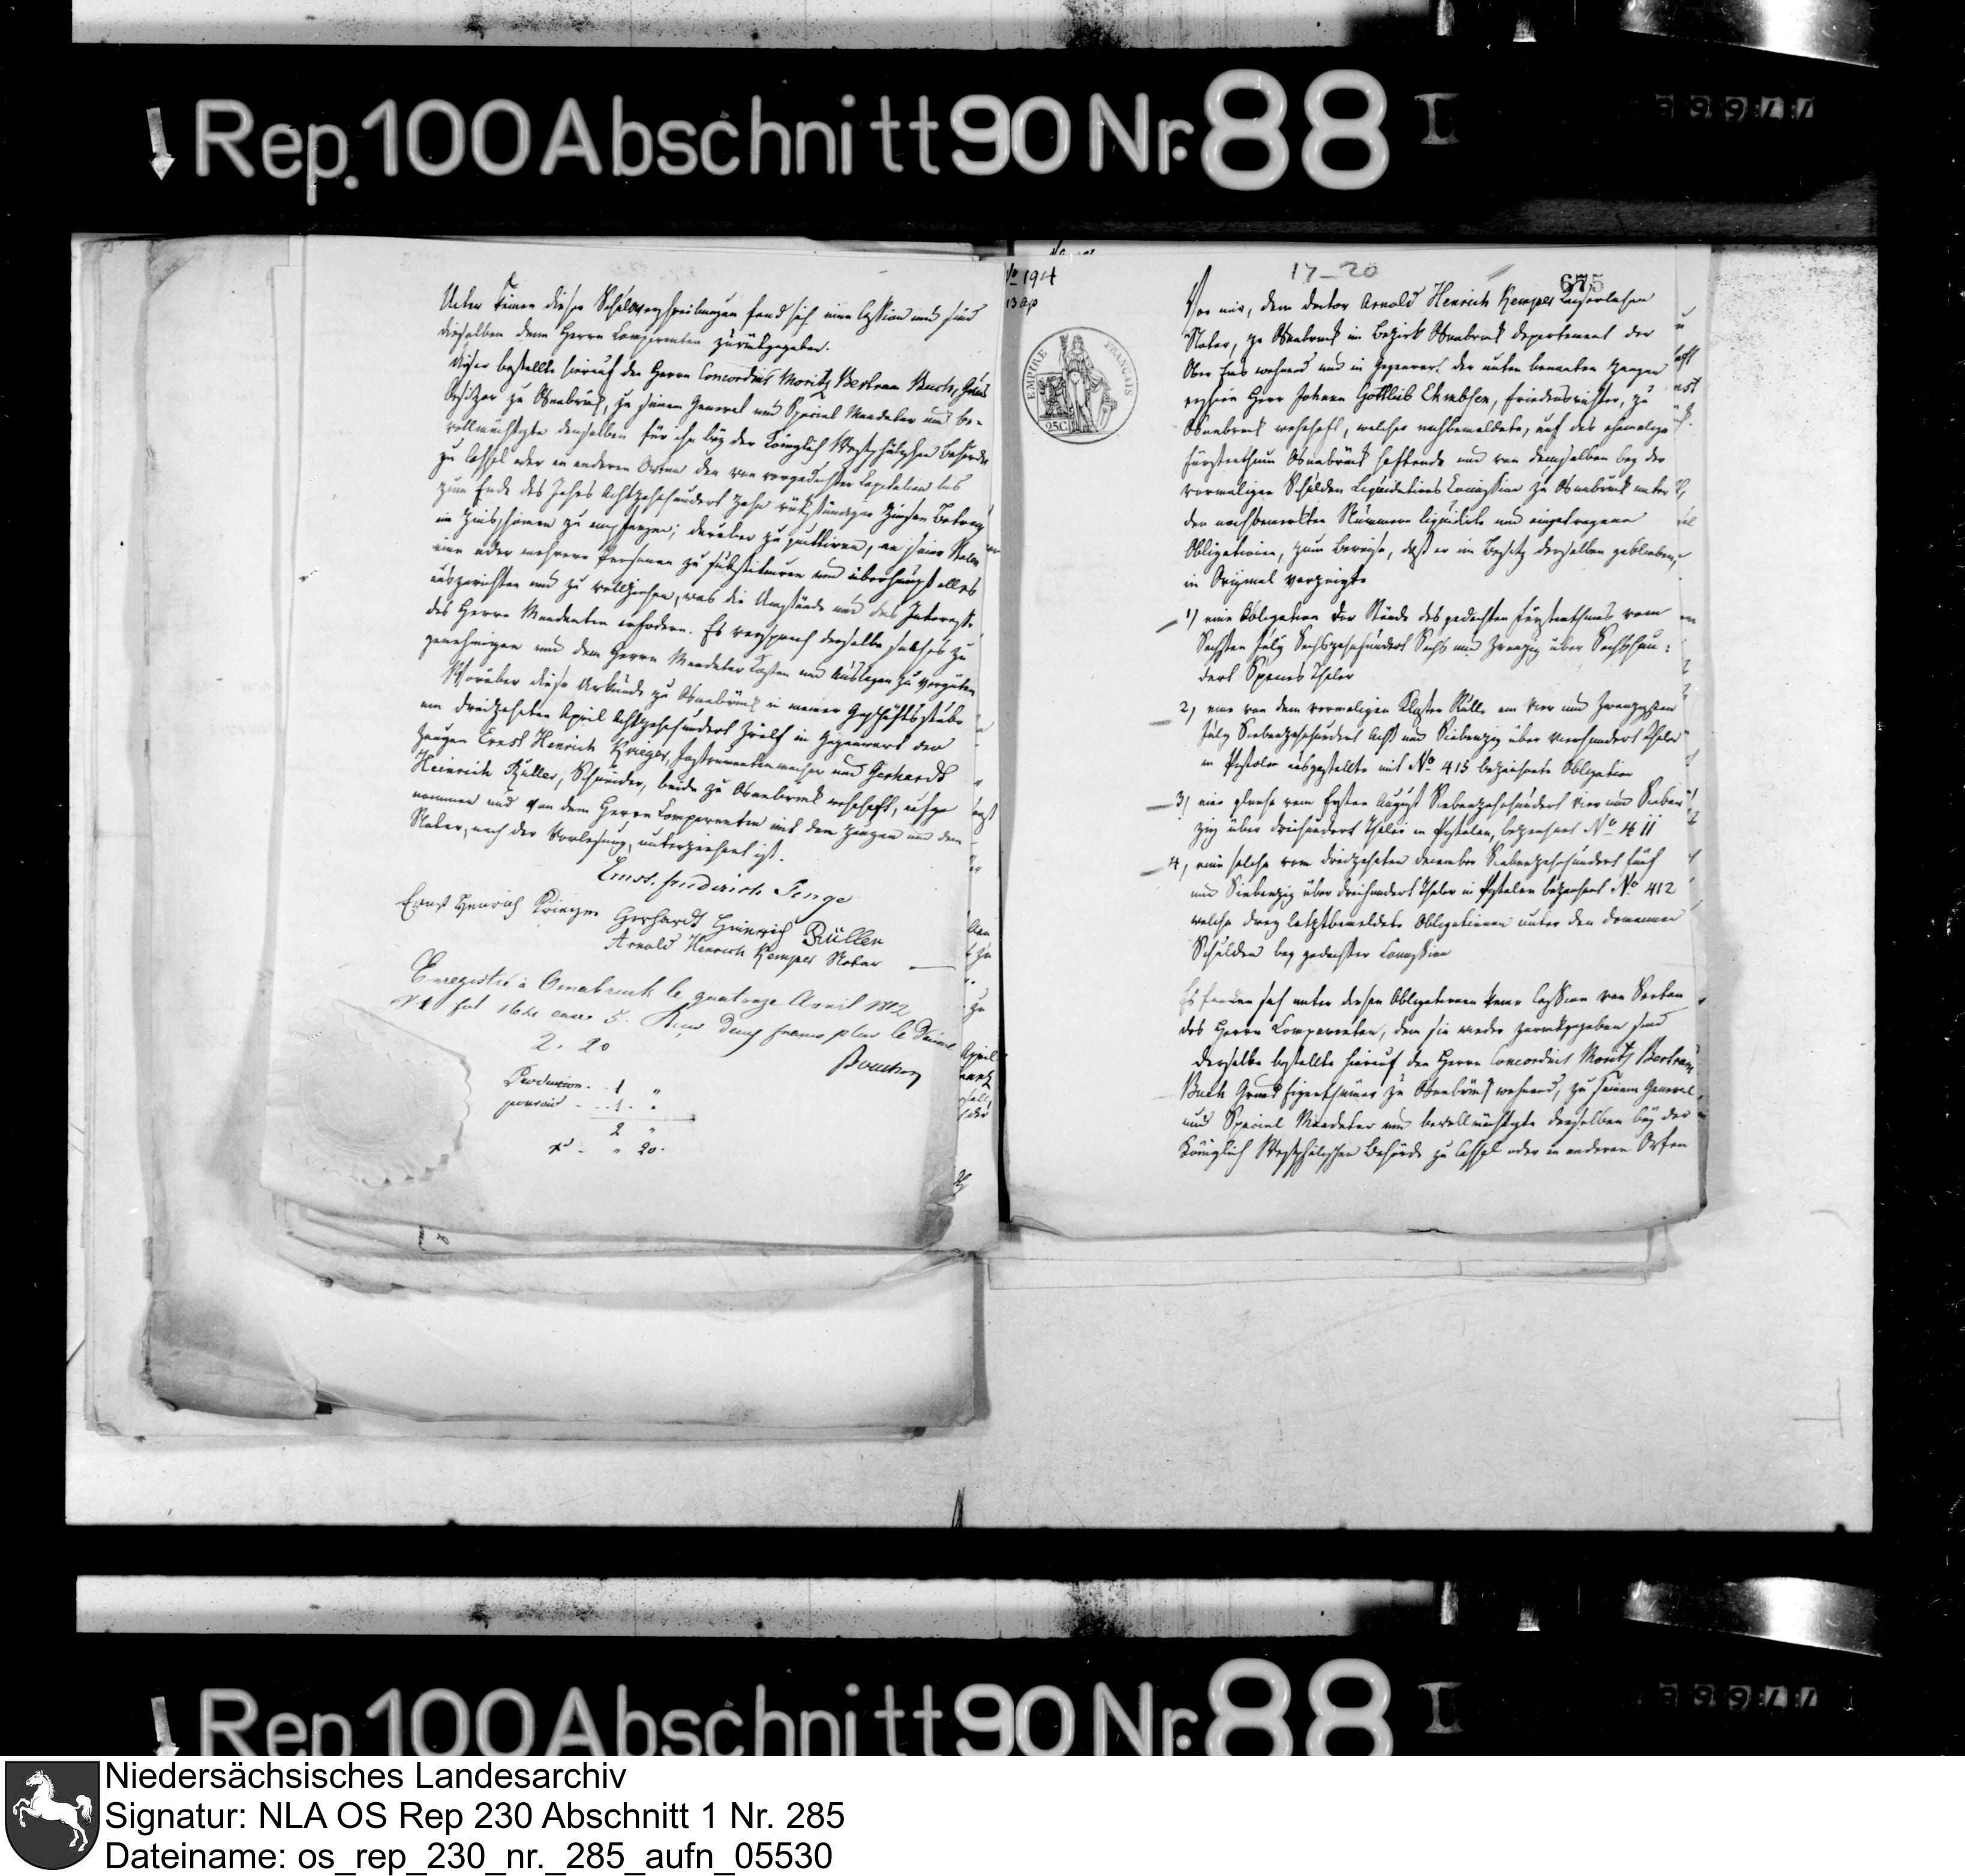 Rep. 100 Abschnitt 90 Nr. 88 I
Unter keiner dieser Schuldverschreibungen fand sich eine Cession und sind
dieselben dem Herrn Comparenten zurückgegeben.
Dieser bestellte hierauf den Herrn Concordius Moritz Bertram Buch, Guts
Besitzer zu Osnabrück, zu seinem General und Special Mandatar und be-
vollmächtigte denselben für ihn bey der Königlich Westphälischen Behörde
zu Cassel oder an anderen Orten den von vorgedachten Capitalien bis
zum Ende des Jahrs Achtzehnhundert Zehn rückständigen Zinsen Betrag
in Zinsscheinen zu empfangen; darüber zu quittiren, an seine Stelle
eine oder mehrere Personen zu substituiren und überhaupt alles
auszurichten und zu vollziehen, was die Umstände und das Interesse
des Herrn Mandanten erfodern. Es versprach derselbe solches zu
genehmigen und dem Herrn Mandatar Kosten und Auslagen zu vergüten
Worüber diese Urkunde zu Osnabrück in meiner Geschäftsstube
am dreizehnten April Achtzehnhundert Zwölf in Gegenwart der
Zeugen Ernst Henrich Krieger, Instrumentenmacher und Gerhardt
Heinrich Rüller, Schneider, beide zu Osnabrück wohnhaft, aufge
nommen und von dem Herrn Comparenten mit den Zeugen und dem
Notar, nach der Vorlesung, unterzeichnet ist.
Ernst Friderich Tenge
Ernst Henrich Krieger Gerhardt Heinrich Rüller
Arnold Henrich Kemper Notar
Enregistré à Osnabruck le quatorze Avril 1812
fol 162 case 5. Reçu deux francs plus le Décime
2. 20
Bouchon
1 "
1. "
2 "
" 20.
No 194
13 Ap
17-20
675
EMPIRE FRANÇAIS
25C
Vor mir, dem doctor Arnold Henrich Kemper Kaiserlichen
Notar, zu Osnabrück im Bezirk Osnabrück Departement der
Ober Ems wohnend und in Gegenwart der unten benannten Zeugen
erschien Herr Johann Gottlieb Ehmbsen, Friedensrichter, zu
Osnabrück wohnhaft, welcher nachbemeldete, auf das ehemalige
Fürstenthum Osnabrück haftende und von demselben bey der
vormaligen Schulden Liquidations Commission zu Osnabrück unter
den nachbemerkten Nummern liquidirte und eingetragene
Obligationen, zum Beweise, daß er im Besitz derselben geblieben,
in Original vorzeigte
1) eine Obligation der Stände des gedachten Fürstenthums vom
Sechsten July Sechszehnhundert Sechs und Zwanzig über Sechshun:
dert Species Thaler
2) eine von dem vormaligen Kloster Rulle am Vier und Zwanzigsten
July Siebenzehnhundert Acht und Siebenzig über Vierhundert Thaler
in Pistolen ausgestellte mit No 415 bezeichnete Obligation
3) eine gleiche vom Ersten August Siebenzehnhundert Vier und Sieben
zig über dreihundert Thaler in Pistolen, bezeichnet No 411
4, eine solche vom dreizehnten December Siebenzehnhundert Fünf
und Siebenzig über dreihundert Thaler in Pistolen bezeichnet No 412
welche drey letztbemeldete Obligationen unter den Domainen
Schulden bey gedachter Commission
Es fanden sich unter diesen Obligationen keine Cession von Seiten
des Herrn Comparenten, dem sie wieder zurückgegeben sind
derselbe bestellte hierauf den Herrn Concordius Moritz Bertram
Buch Grund Eigenthümer zu Osnabrück wohnend, zu seinem General
und Special Mandatar und bevollmächtigte denselben bey der
Königlich Westphälischen Behörde zu Cassel oder an anderen Orten
Rep. 100 Abschnitt 90 Nr. 88 I
Niedersächsisches Landesarchiv
Signatur: NLA OS Rep 230 Abschnitt 1 Nr. 285
Dateiname: os_rep_230_nr._285_aufn_05530